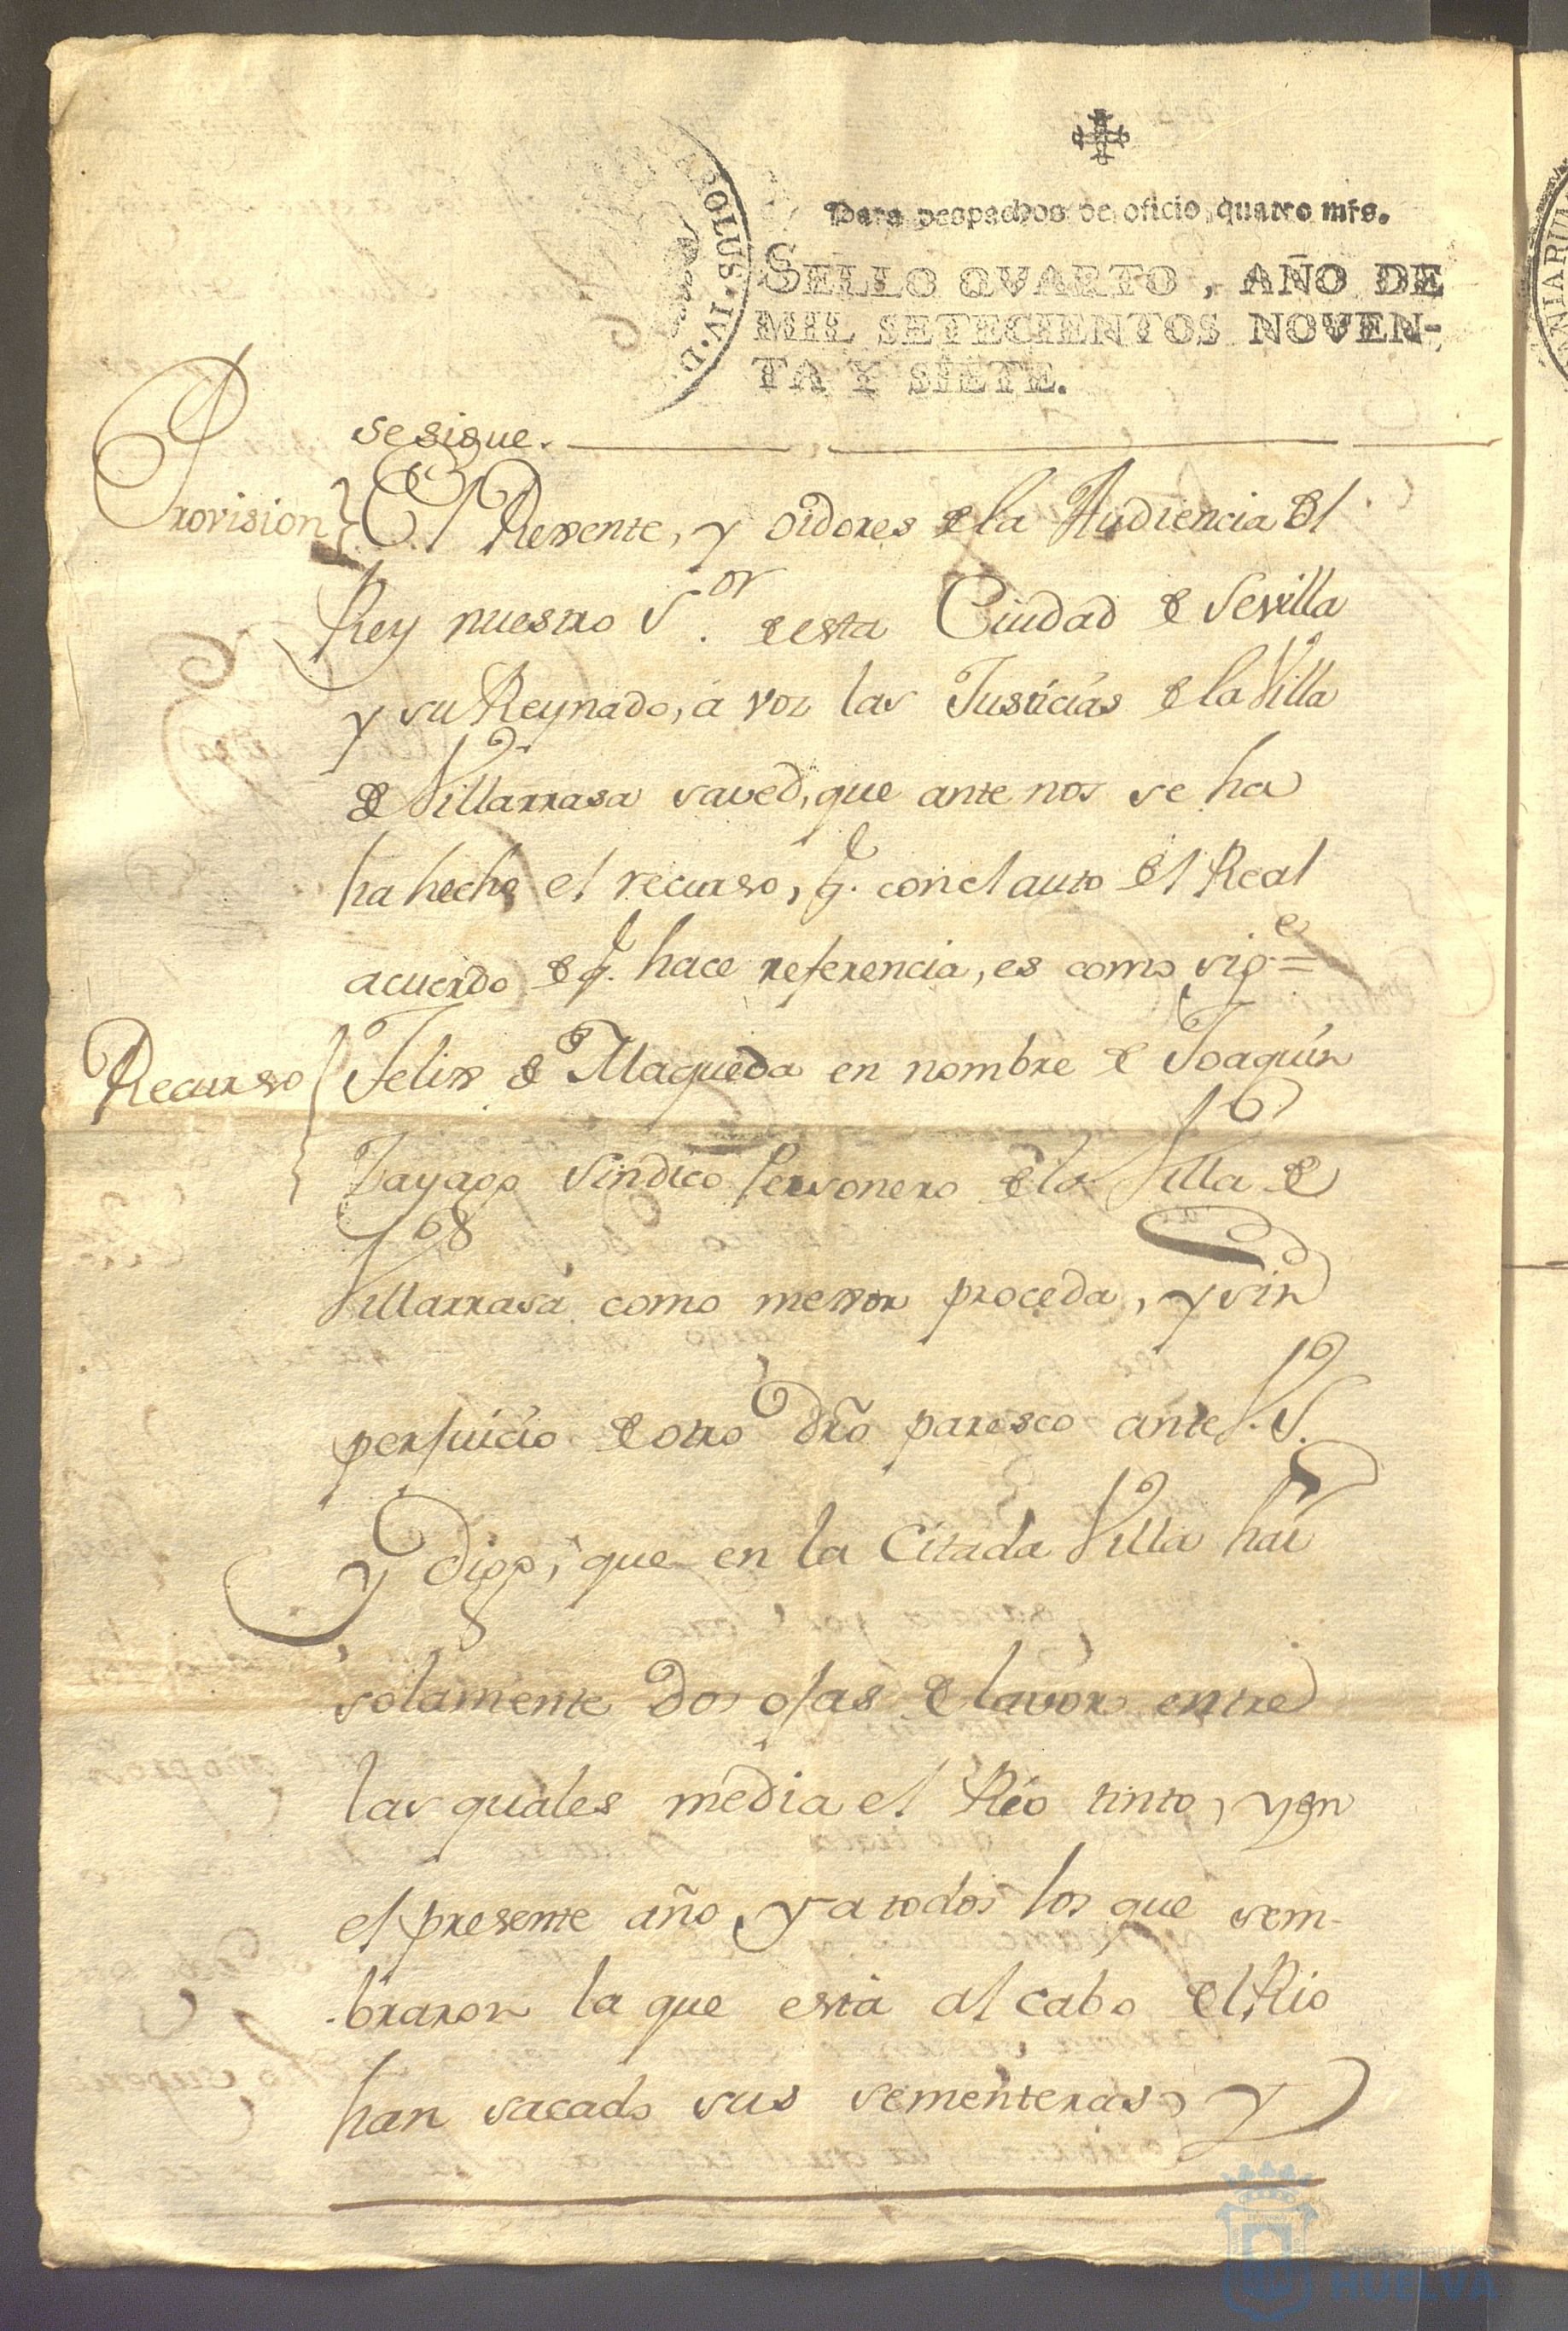 CAROLUS. IV. D.
Para despachos de oficio, quatro mrs.
SELLO QVARTO, AÑO DE
MIL SETECIENTOS NOVEN-
TA Y SIETE.
se sigue.
Provision
El Rexente, y oidores de la Audiencia del
Rey nuestro S.or de esta Ciudad de Sevilla
y su Reynado, á vos las Justicias de la Villa
de Villarrasa saved, que ante nos se ha
ha hecho el recurso, q. con el auto del Real
acuerdo de q. hace referencia, es como sig.e =
Recurso
Felix de Maqueda en nombre de Joaquin
Tayago Sindico Personero de la Villa de
Villarrasa como mexor proceda, y sin
perjuicio de otro dro paresco ante V.S.
y digo, que en la Citada Villa hai
solamente dos ojas de lavor entre
las quales media el Rio tinto, y en
el presente año ya todos los que sem-
braron la que esta al cabo del Rio
han sacado sus sementeras, y
HUELVA